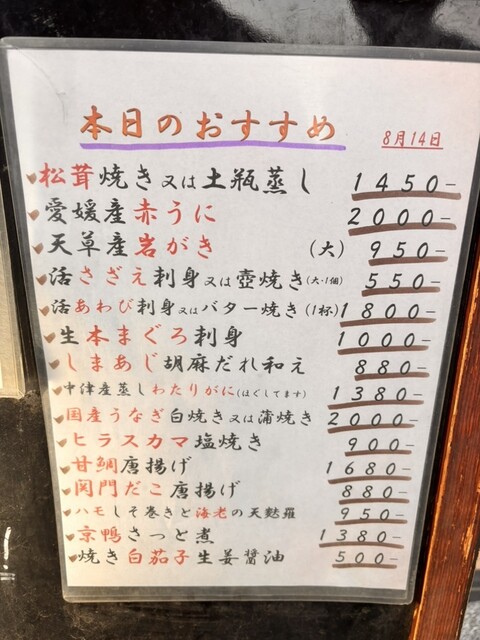 本日のおすすめ
8月14日
松茸焼き又は土瓶蒸し 1450-
愛媛産赤うに 2000-
天草産岩がき (大) 950-
活さざえ刺身又は壺焼き(大・1個) 550-
活あわび刺身又はバター焼き(1杯) 1800-
生本まぐろ刺身 1000-
しまあじ胡麻だれ和え 880-
中津産蒸しわたりがに(ほぐしてます) 1380-
国産うなぎ白焼き又は蒲焼き 2000-
ヒラスカマ塩焼き 900-
甘鯛唐揚げ 1680-
関門だこ唐揚げ 880-
ハモしそ巻きと海老の天麩羅 950-
京鴨さっと煮 1380-
焼き白茄子生姜醤油 500-